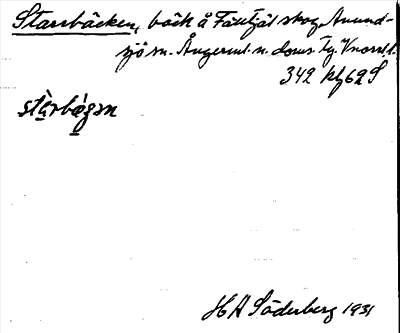 Starrbäcken, bäck å Fälltjäl skog, Anund-
sjö sn. Ångerml. n. doms. Tg. Vnorrl. l.
342 kf 62 S
stàrbǽgṇ
H A Söderberg 1931